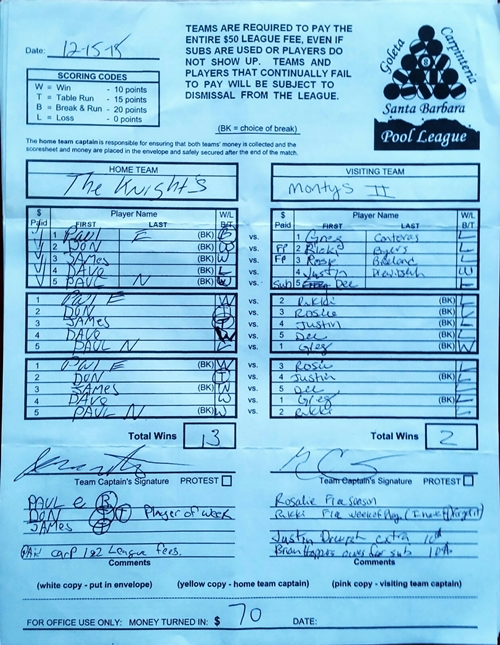 TEAMS ARE REQUIRED TO PAY THE
ENTIRE $50 LEAGUE FEE, EVEN IF
SUBS ARE USED OR PLAYERS DO
NOT SHOW UP. TEAMS AND
PLAYERS THAT CONTINUALLY FAIL
TO PAY WILL BE SUBJECT TO
DISMISSAL FROM THE LEAGUE.
(BK = choice of break)
Goleta Carpinteria
Santa Barbara
Pool League
Date: 12-15-15
SCORING CODES
W = Win - 10 points
T = Table Run - 15 points
B = Break & Run - 20 points
L = Loss - 0 points
The home team captain is responsible for ensuring that both teams' money is collected and the
scoresheet and money are placed in the envelope and safely secured after the end of the match.
HOME TEAM VISITING TEAM
The Knight's Montys II
$ Paid Player Name FIRST LAST W/L B/T $ Paid Player Name FIRST LAST W/L B/T
1 PAUL E (BK) B vs. 1 Greg Contreras L
2 DON (BK) vs. FP 2 Rikki L
3 JAMES (BK) W vs. FP 3 Rosie L
4 DAVE (BK) L vs. 4 Justin W
5 PAUL N (BK) W vs. Sub 5 Dee L
1 PAUL E W vs. 2 Rikki (BK) L
2 DON T vs. 3 Rosie (BK) L
3 JAMES T vs. 4 Justin (BK) L
4 DAVE W vs. 5 Dee (BK) L
5 PAUL N L vs. 1 Greg (BK) W
1 PAUL E (BK) W vs. 3 Rosie L
2 DON (BK) T vs. 4 Justin L
3 JAMES (BK) W vs. 5 Dee L
4 DAVE (BK) W vs. 1 Greg L
5 PAUL N (BK) W vs. 2 Rikki L
Total Wins 13 Total Wins 2
Team Captain's Signature PROTEST Team Captain's Signature PROTEST
PAUL E B
DON T T Player of week
JAMES T
PAID CARP 1&2 League fees.
Comments
Rosalie Fire season
Rikki
Justin extra 10th
Brian owes for sub
Comments
(white copy - put in envelope) (yellow copy - home team captain) (pink copy - visiting team captain)
FOR OFFICE USE ONLY: MONEY TURNED IN: $ 70 DATE: